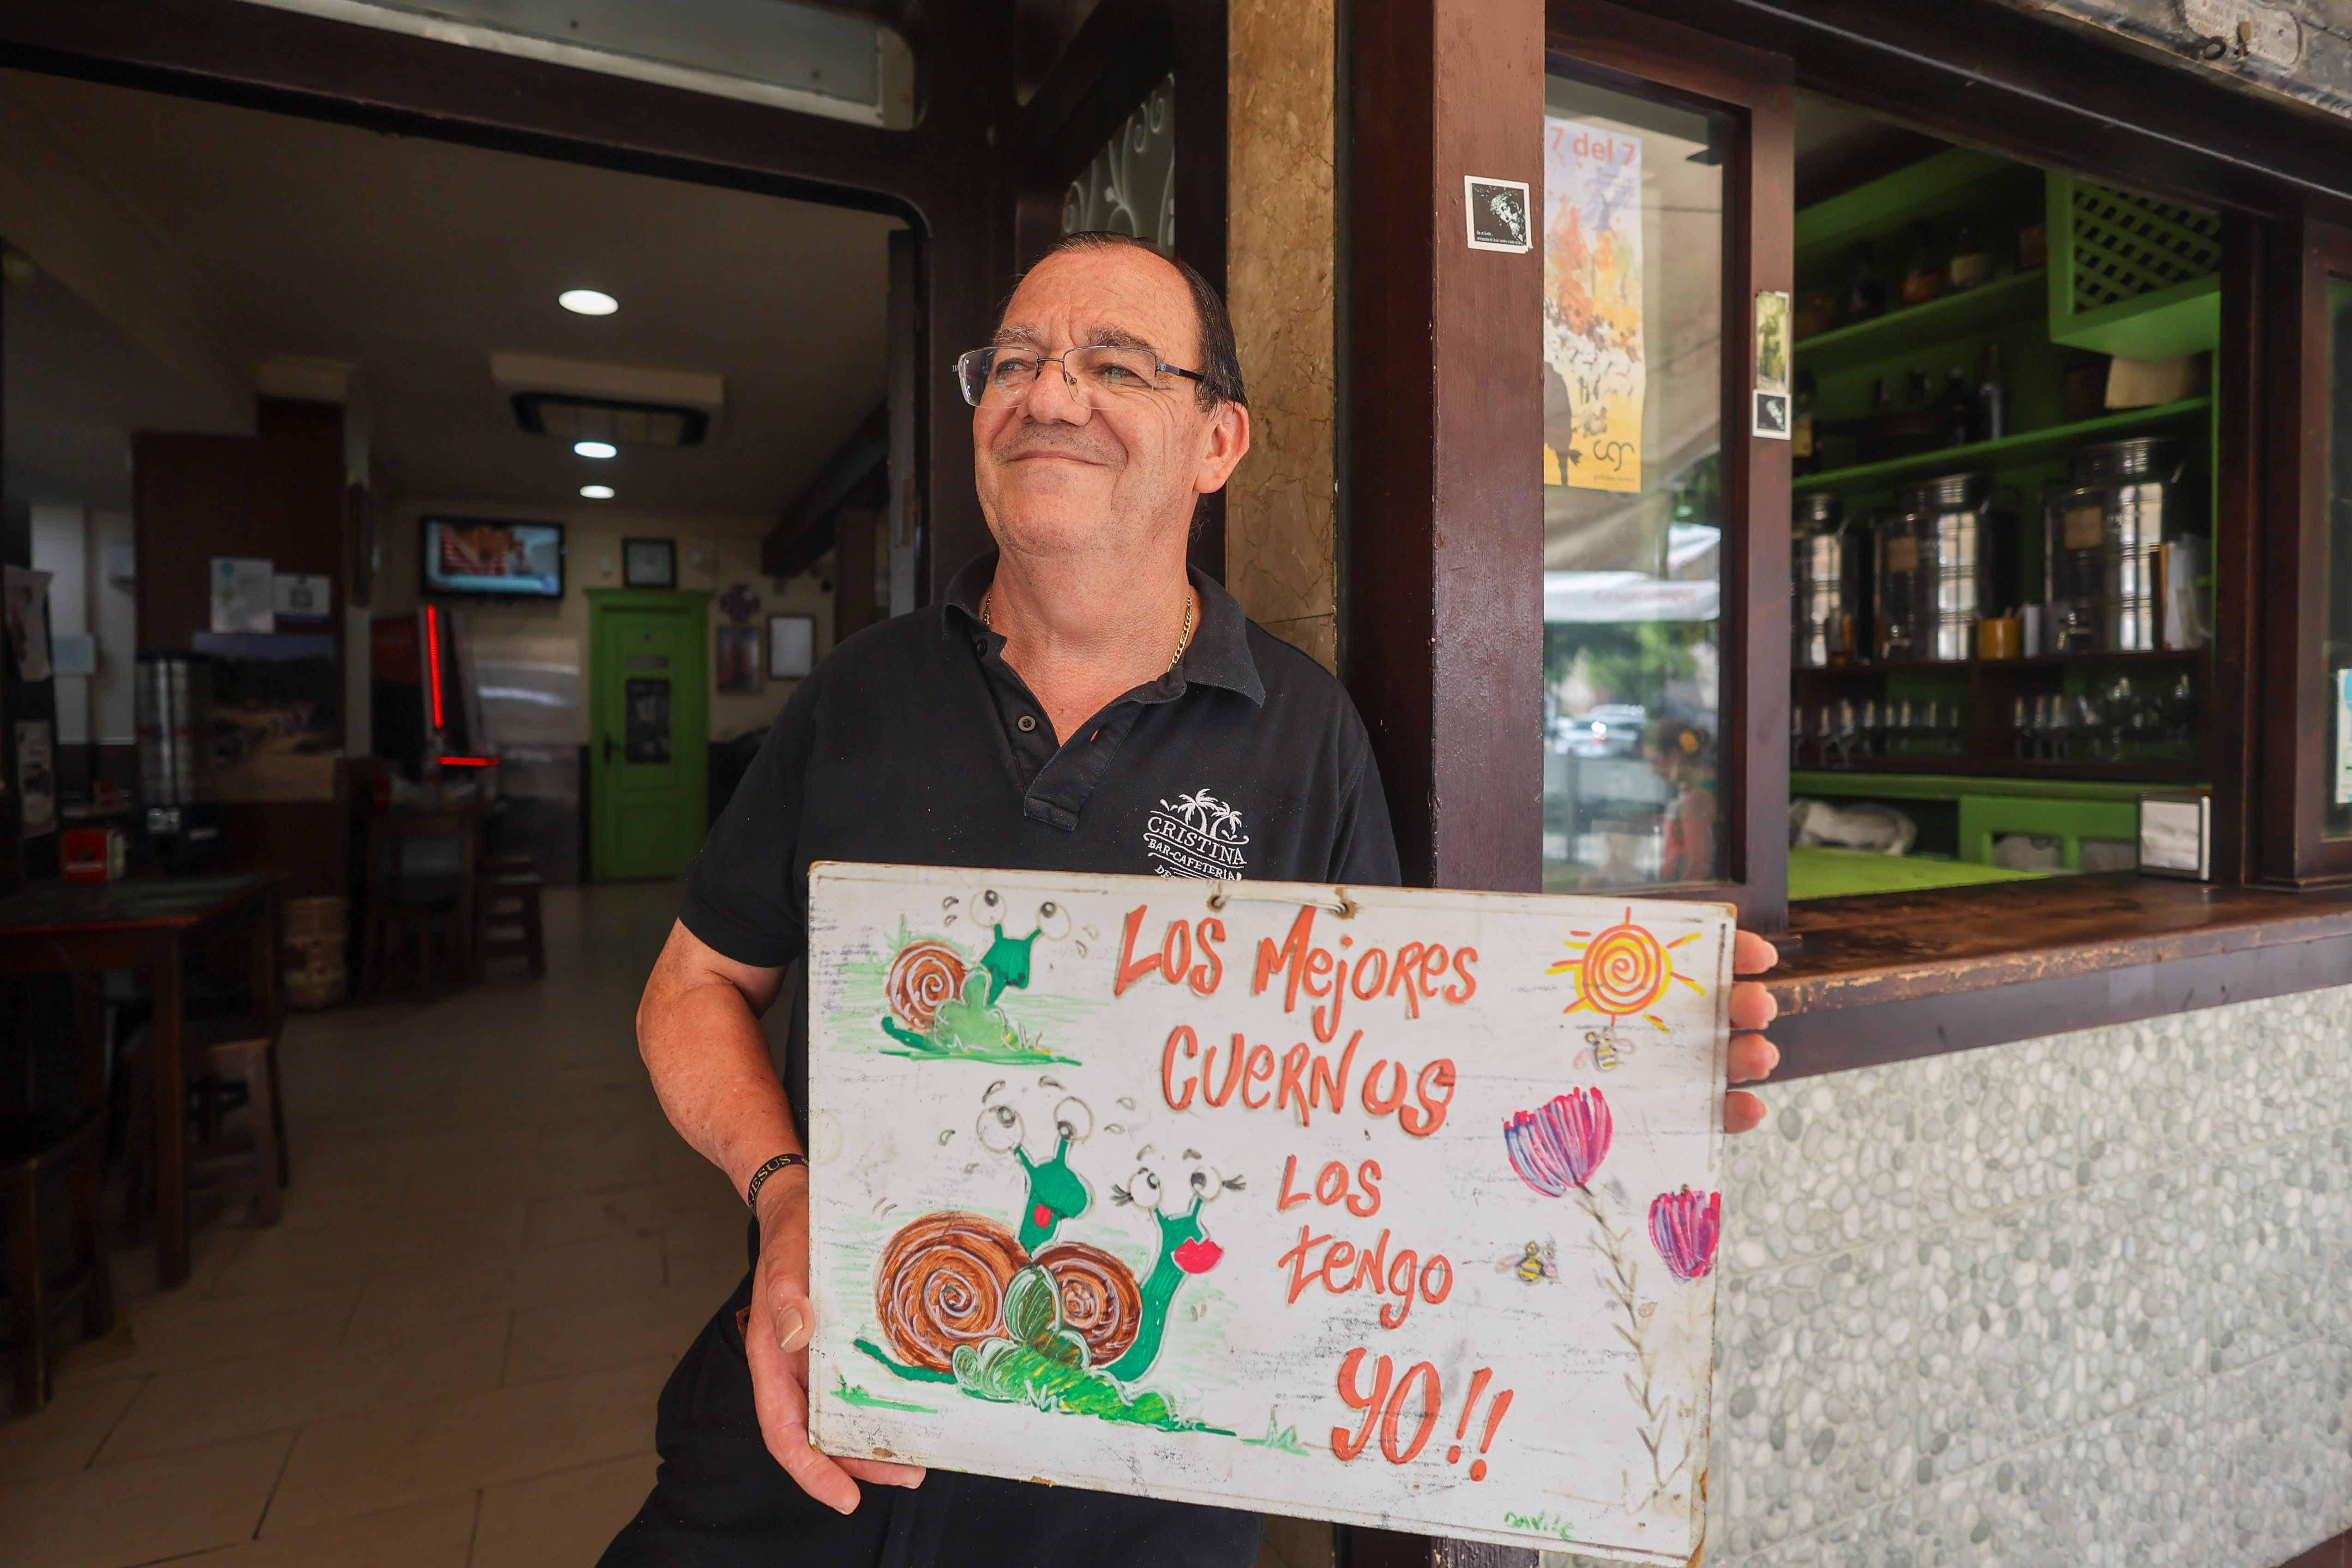 7 del 7
CRISTINA
BAR-CAFETERIA
DE
JESUS
LOS MEJORES
CUERNOS
LOS
TENGO
YO!!